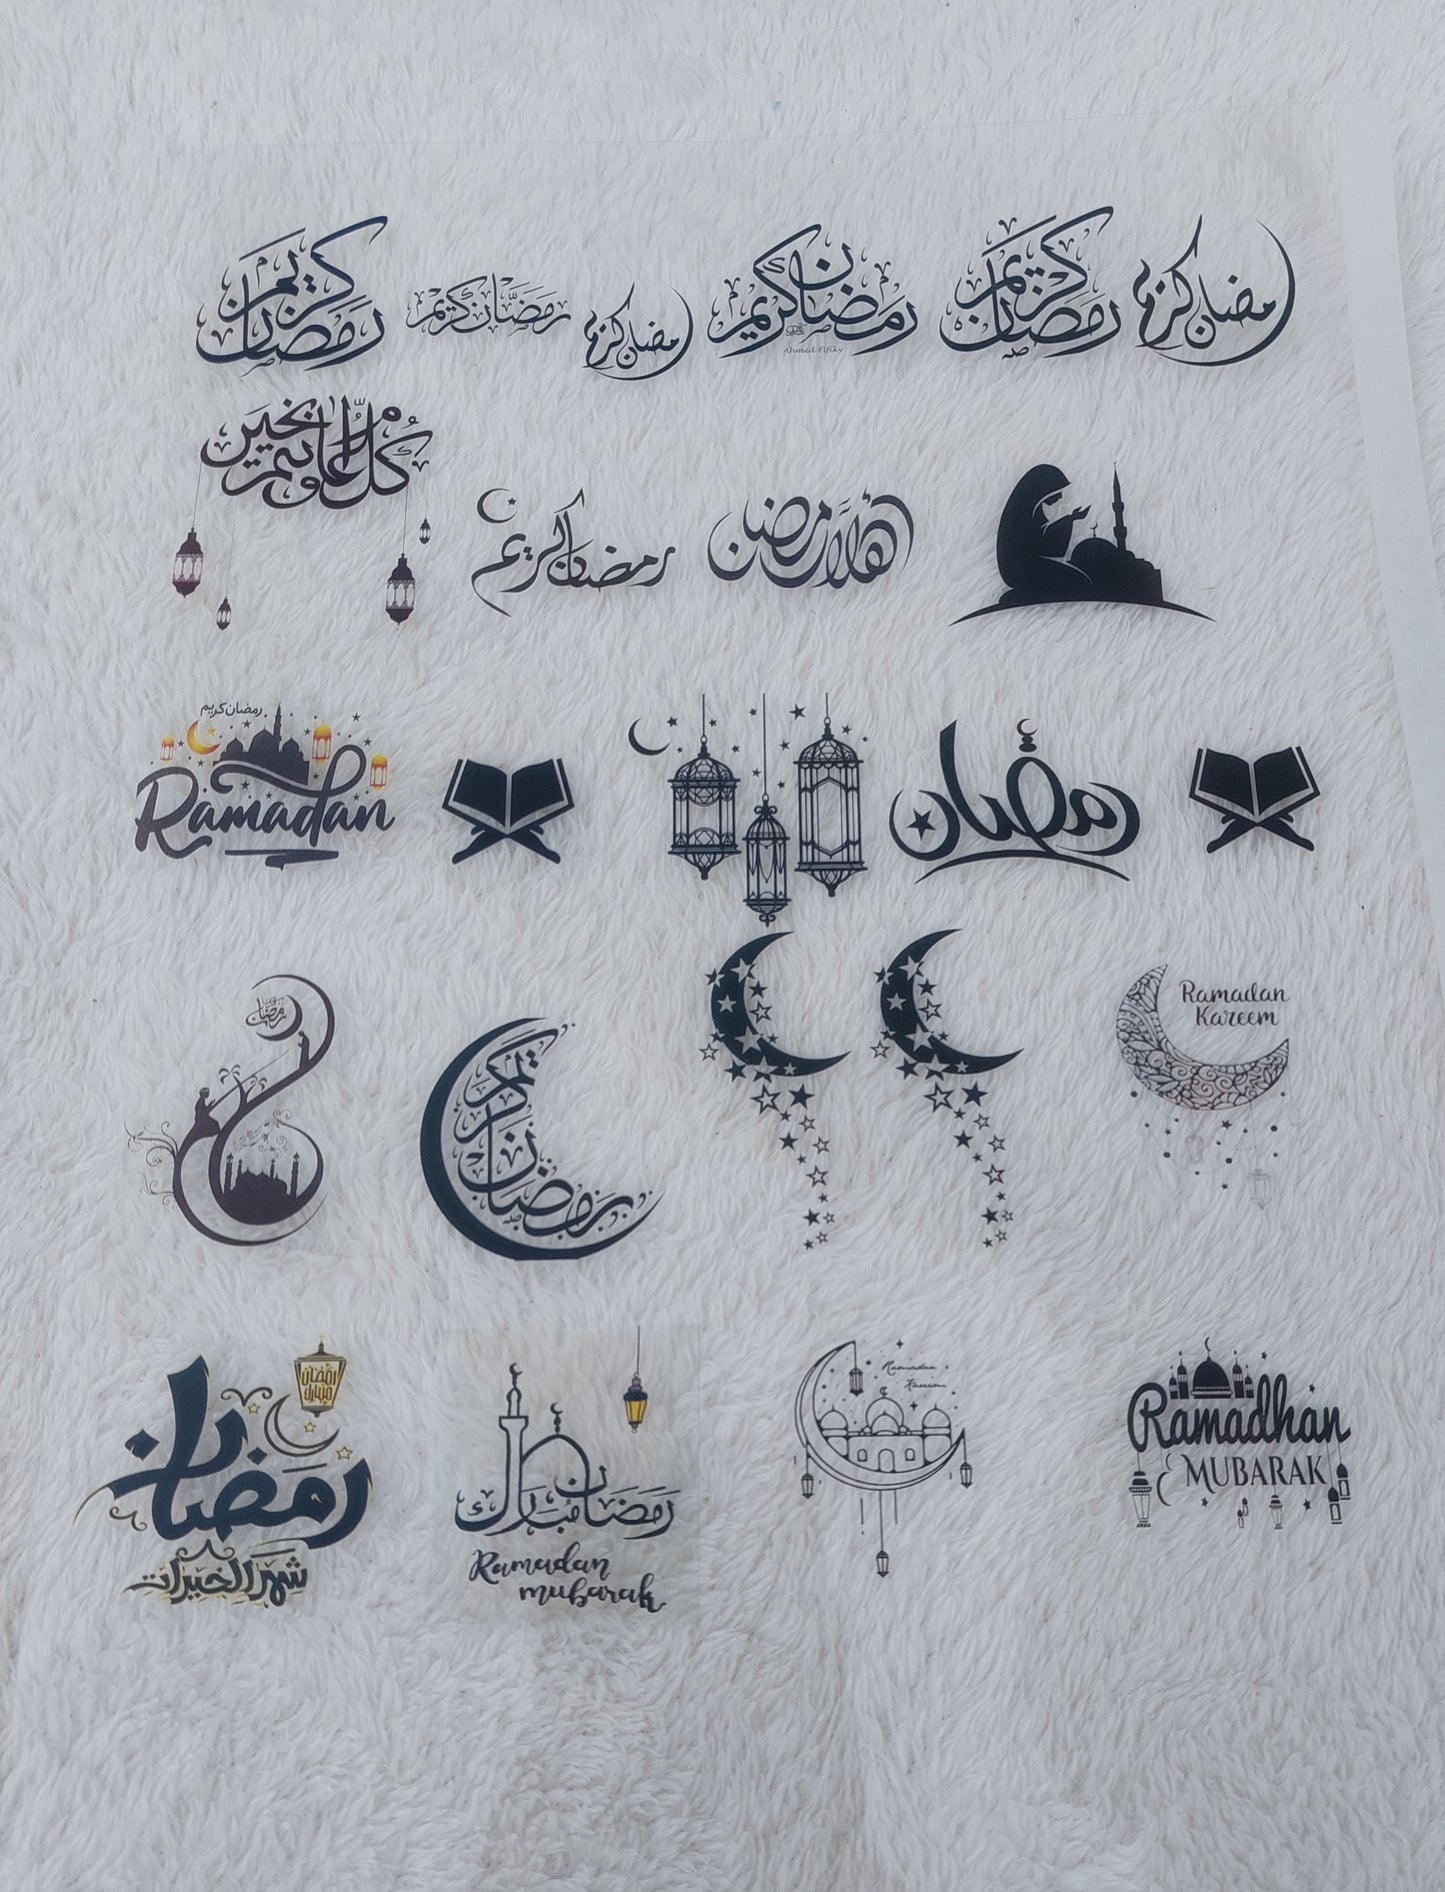 رمضان كريم
رمضان كريم
رمضان كريم
رمضان كريم
Ahmed Elfiky
رمضان كريم
رمضان كريم
كل عام وأنتم بخير
رمضان كريم
هلا رمضان
رمضان كريم
Ramadan
رمضان
رمضان
رمضان كريم
Ramadan
Kareem
رمضان
مبارك
رمضان
شهر الخيرات
رمضان مبارك
Ramadan
mubarak
Ramadan
Kareem
Ramadhan
MUBARAK